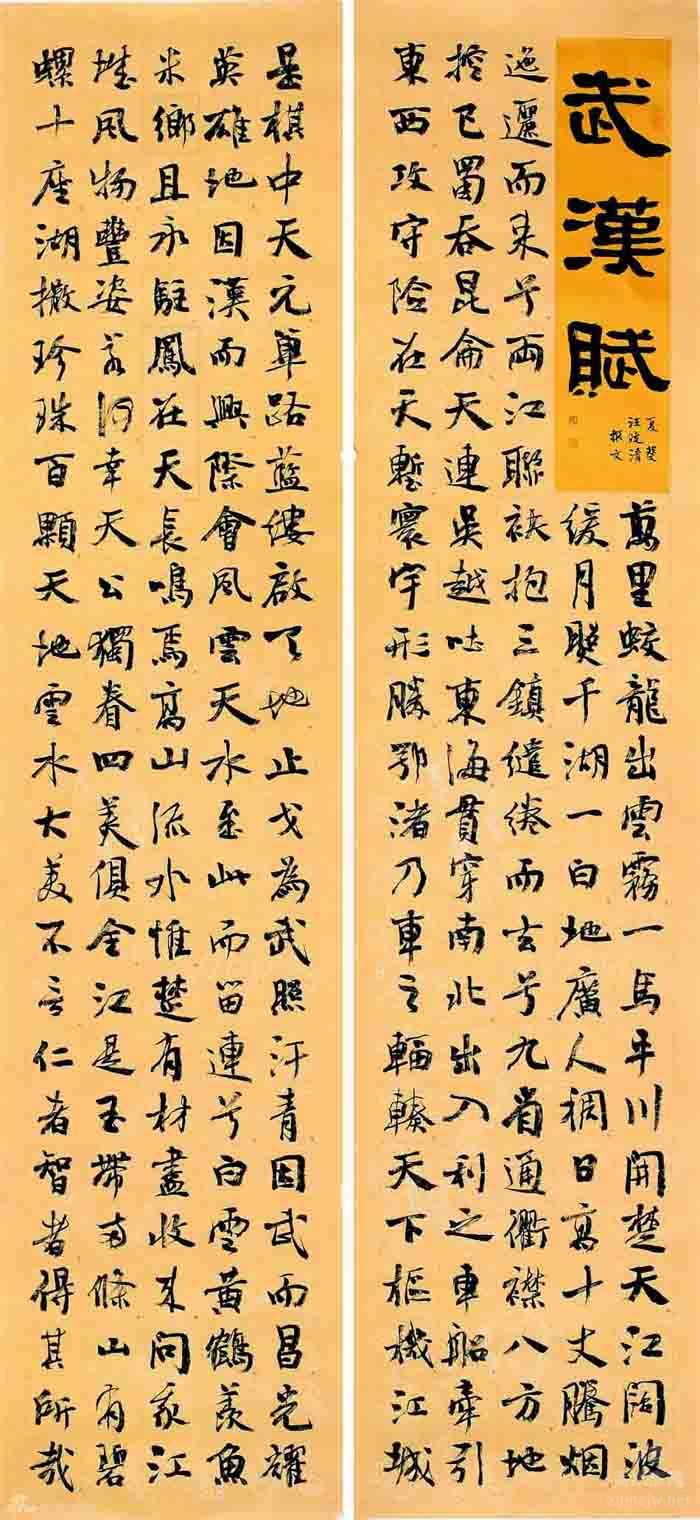 武漢賦
夏楚
撰文
萬里蛟龍出雲霧一馬平川開楚天江闊波
緩月映千湖一白地廣人稠日高十丈騰烟
迤邐而來兮兩江聯袂抱三鎮繾綣而去兮九省通衢襟八方地
控巴蜀吞昆侖天連吳越吐東海貫穿南北出入利之車船牽引
東西攻守險在天塹寰宇形勝鄂渚乃車之輻輳天下樞機江城
是棋中天元篳路藍縷啟天地止戈為武照汗青因武而昌光耀
英雄地因漢而興際會風雲天水至此而留連兮白雲黃鶴羨魚
米鄉且永駐鳳在天長鳴焉高山流水惟楚有材盡收來問我江
城風物豐姿若何幸天公獨眷四美俱全江是玉帶兩條山有碧
螺十座湖撒珍珠百顆天地雲水大美不言仁者智者得其所哉
zgmsjw.net